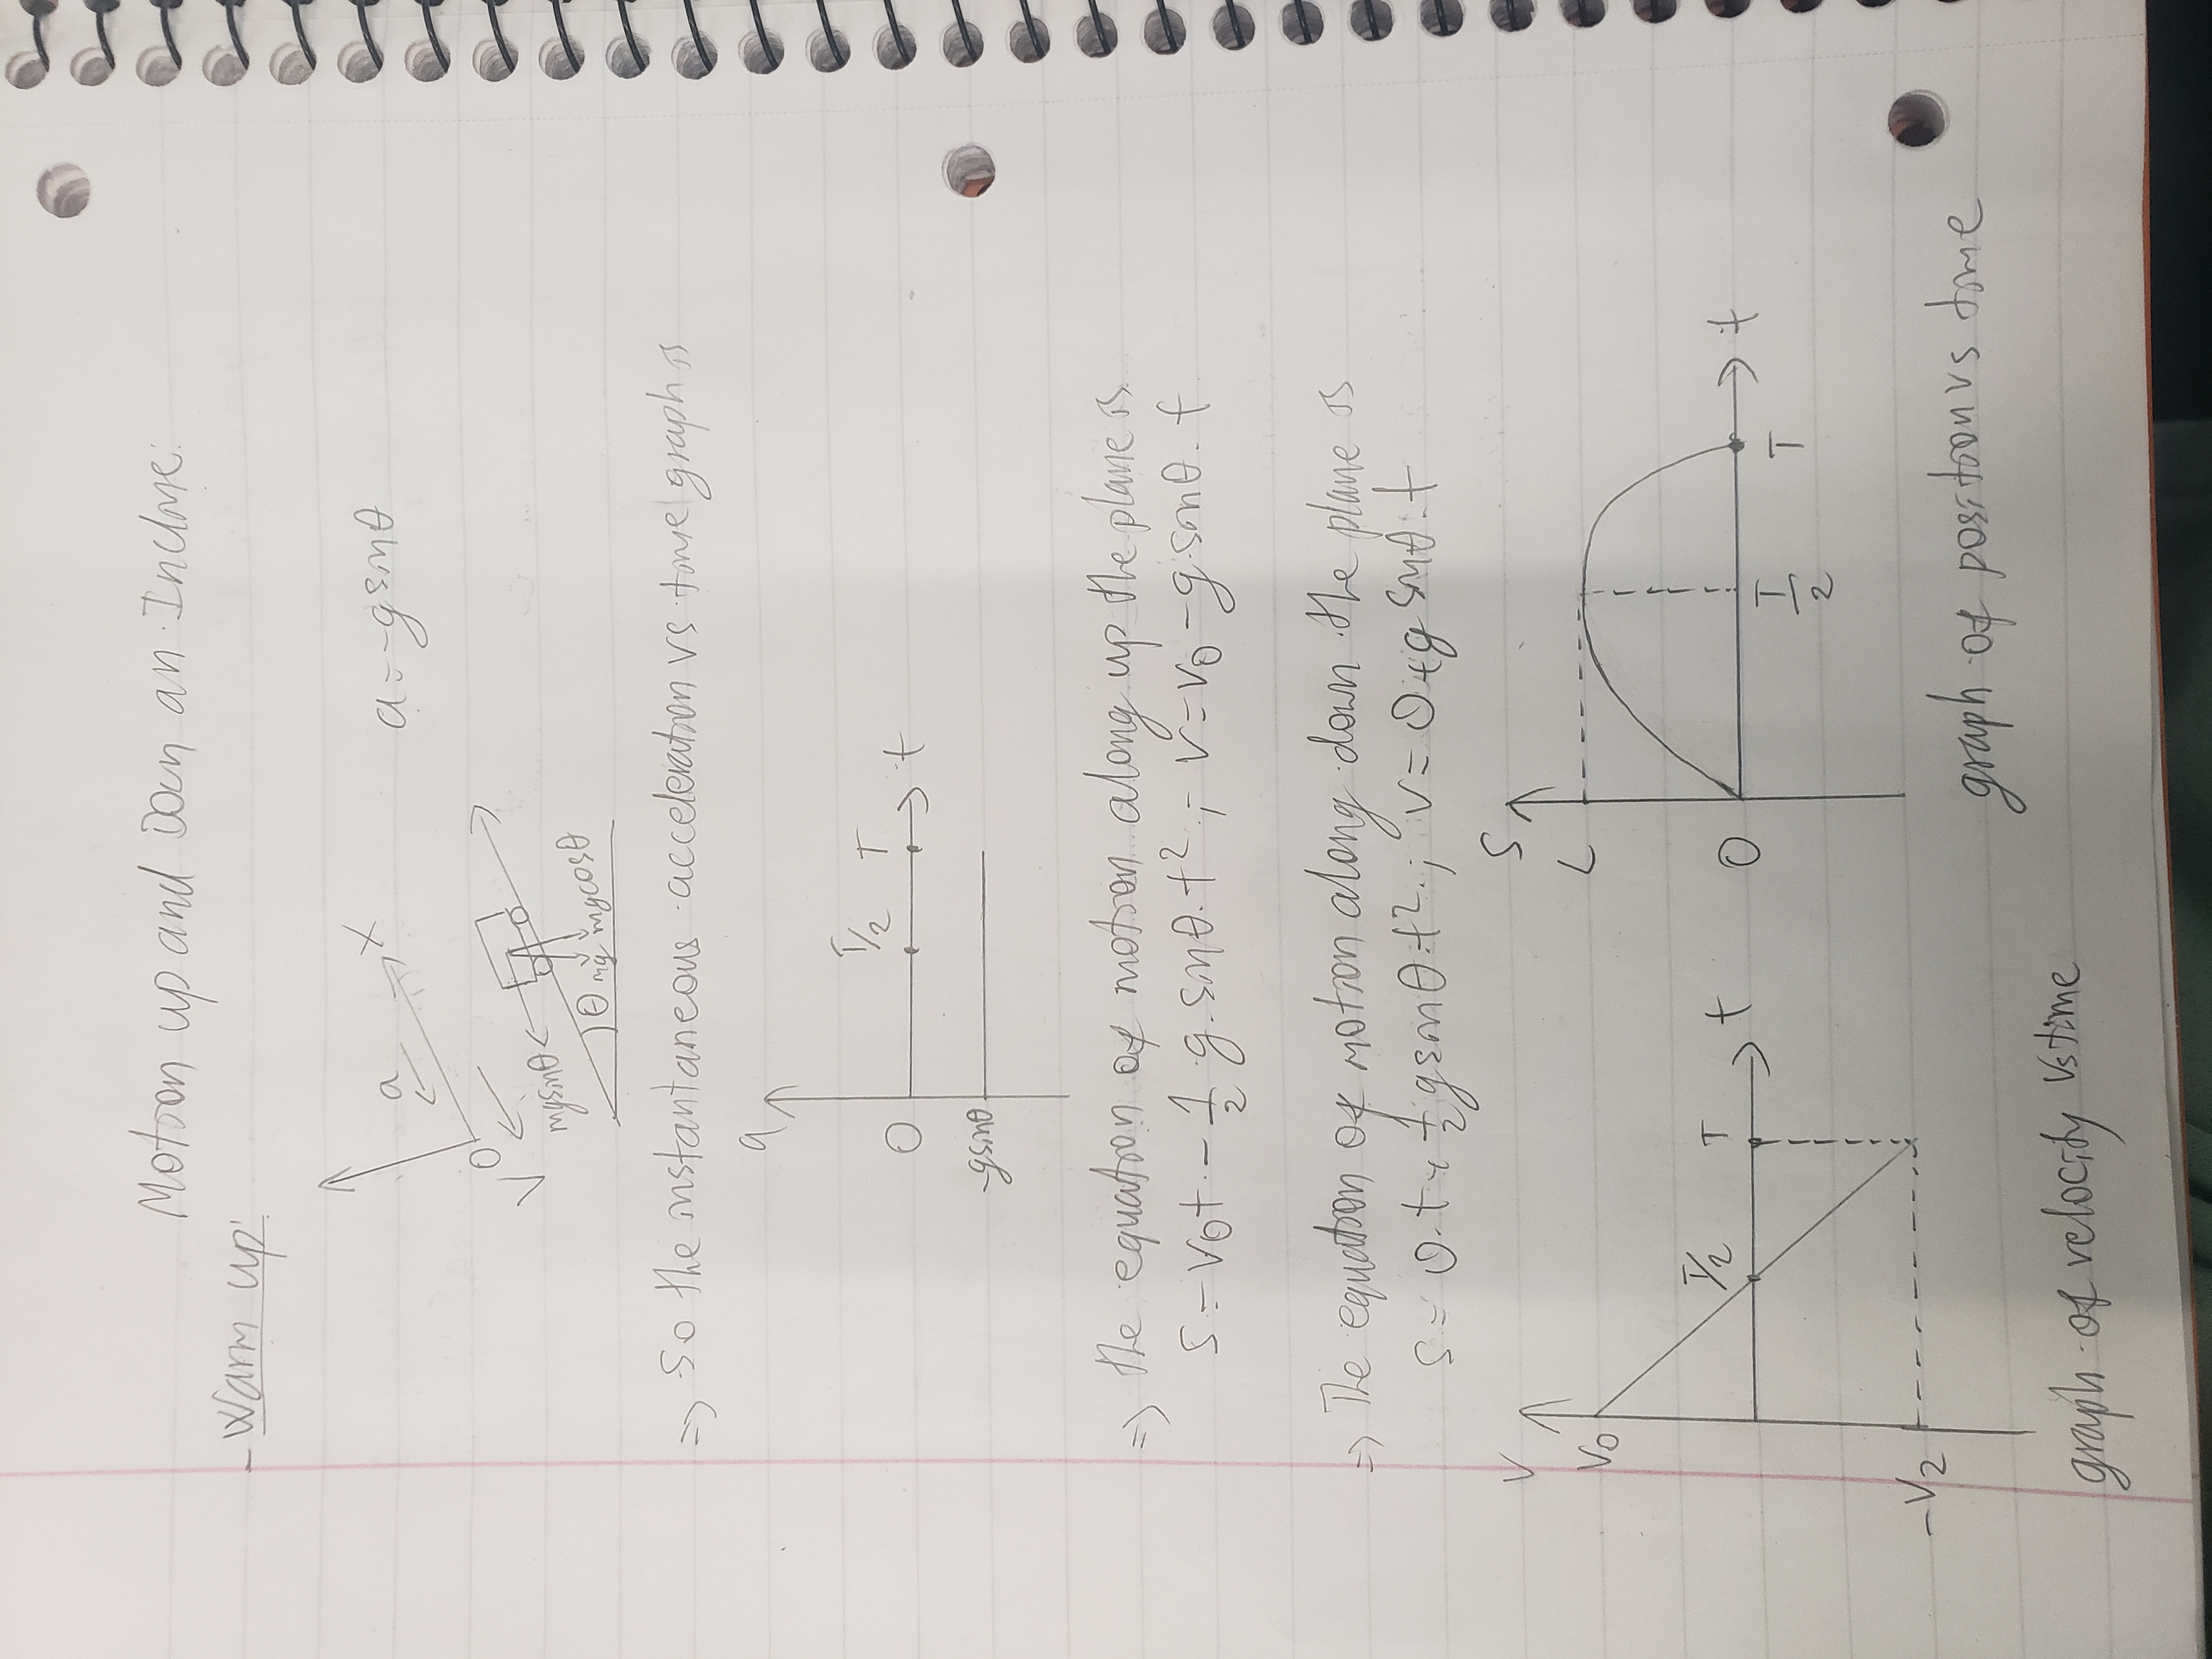 Motion up and Down an Incline:
- Warm up:
a
X
a = -gsinθ
O
V
mgsinθ
θ mg mgcosθ
=> So the instantaneous acceleration vs time graph is
a
T/2 T
O t
-gsinθ
=> the equation of motion along up the plane is
S = V0t - 1/2 g.sinθ.t² ; V = V0 - g.sinθ.t
=> The equation of motion along down the plane is
S = 0.t + 1/2 gsinθ.t² ; V = 0 + g sinθ.t
V
V0
T/2 T t
-V2
graph of velocity vs time
S
L
O t
T/2 T
graph of position vs time